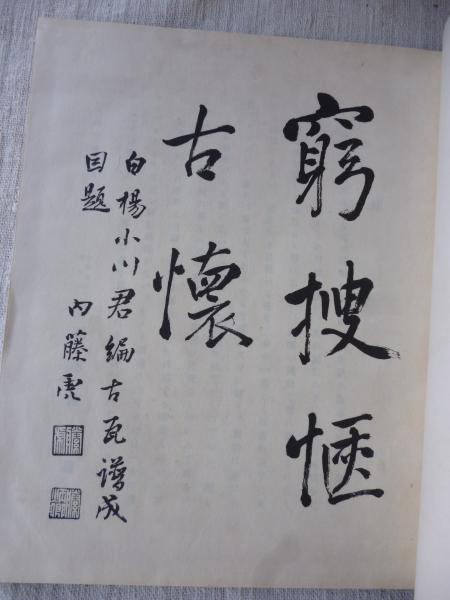 窮搜愜
古懷
白楊小川君編古瓦譜成
因題
内藤虎